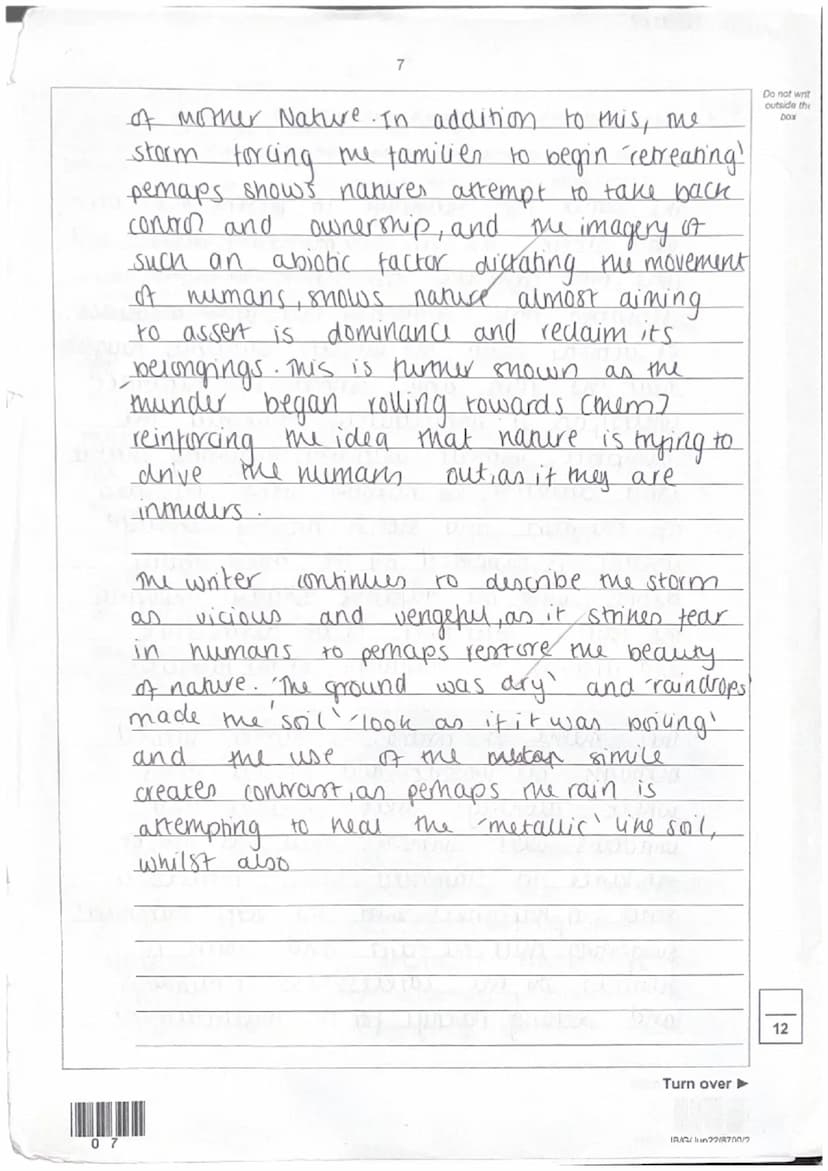 7
Do not writ
outside the
box
of mother Nature. In addition to this, the
storm forcing the families to begin 'retreating'
perhaps shows natures attempt to take back
control and ownership, and the imagery of
such an abiotic factor dictating the movement
of humans, shows nature almost aiming
to assert is dominance and reclaim its
belongings. This is further shown as the
'thunder began rolling towards (them)
reinforcing the idea that nature is trying to
drive the humans out, as if they are
intruders.
The writer continues to describe the storm
as vicious and vengeful, as it strikes fear
in humans to perhaps restore the beauty
of nature. 'The ground was dry' and 'raindrops'
made the 'soil' 'look as if it was boiling'
and the use of the simile
creates contrast, as perhaps the rain is
attempting to heal the 'metallic' like soil,
whilst also
12
Turn over ►
0 7
IB/G/Jun22/8700/2